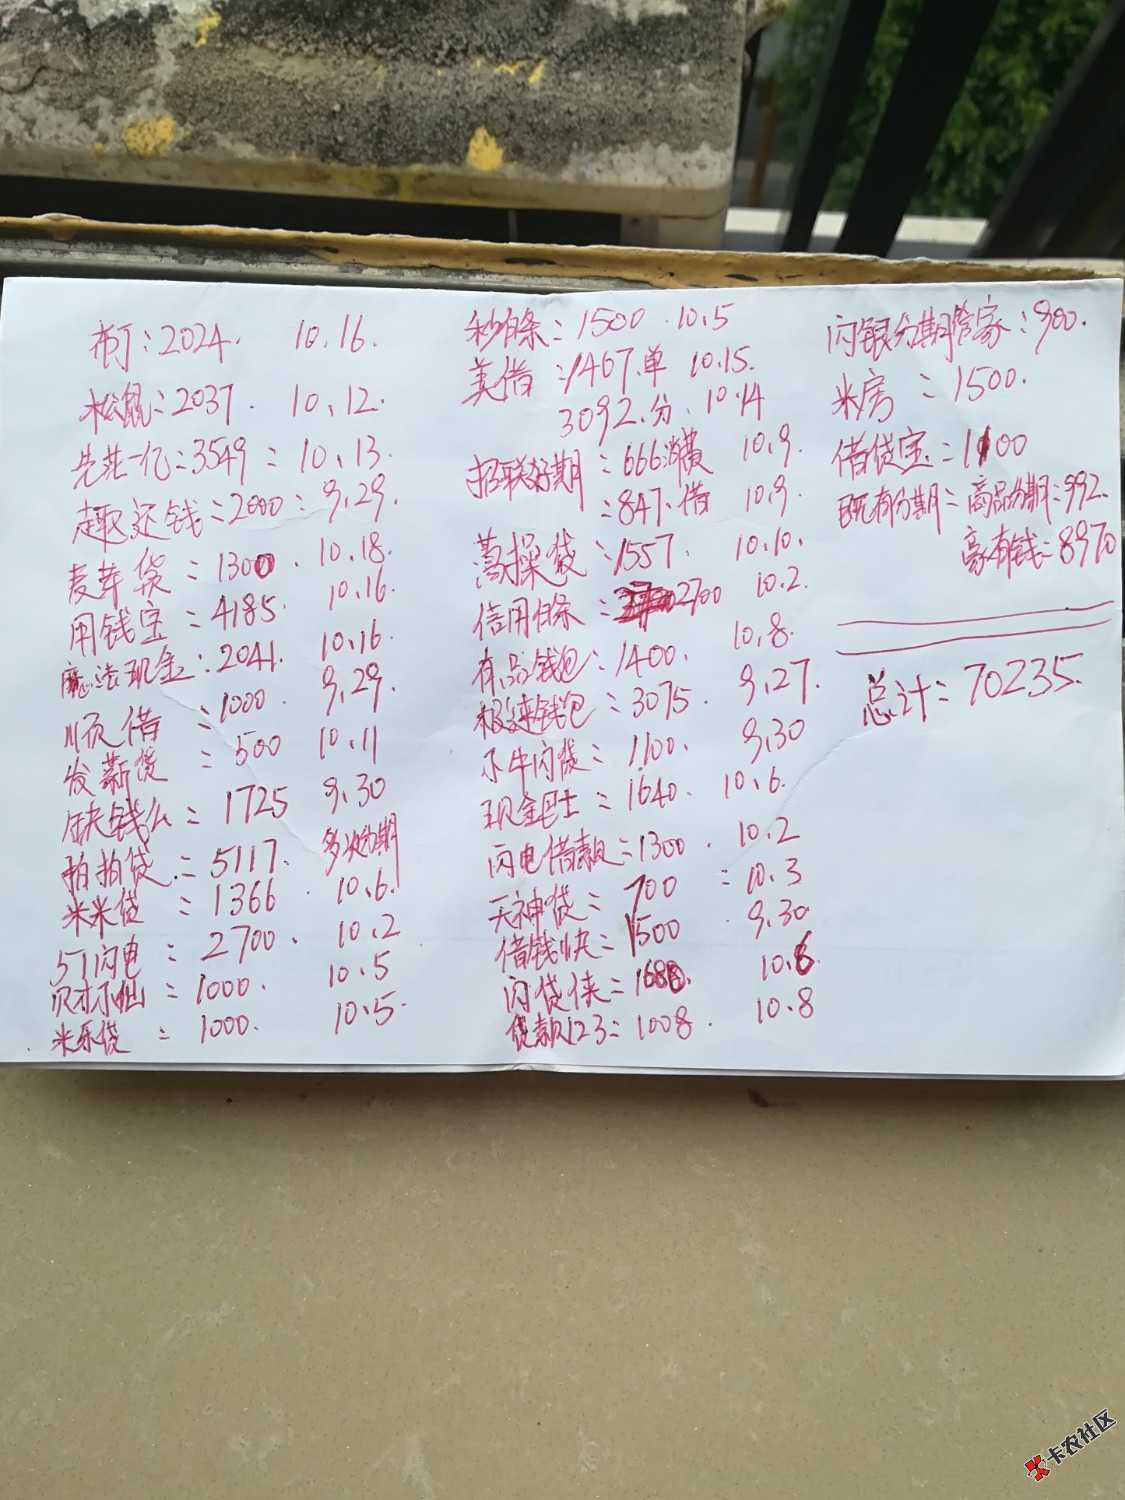 布丁：2024. 10.16.
松鼠：2037. 10.12.
先花一亿：3549： 10.13.
趣还钱：2000： 9.29.
麦芽贷：1300. 10.18.
用钱宝：4185. 10.16.
魔法现金：2041. 10.16.
顺借：1000. 9.29.
发薪贷：500 10.11
缺钱么：1725 9.30
拍拍贷：5117. 多次分期
米米贷：1366. 10.6.
51闪电：2700. 10.2
：1000. 10.5
米乐贷：1000. 10.5.
秒白条：1500. 10.5
美借：1467.单 10.15.
3092.分. 10.14
招联好期：666消费 10.9.
：847.借 10.9.
：1557. 10.10.
信用白条：2700 10.2
有品钱包：1400. 10.8.
极速钱包：3075. 9.27.
小牛闪贷：1100. 9.30
现金巴士：1640. 10.6.
闪电借款：1300. 10.2
天神贷：700 ：10.3
借钱快：1500 9.30
闪贷侠：1688. 10.6.
贷款123：1008. 10.8
闪银分期管家：900.
米房：1500.
借贷宝：1100
既有分期：商品分期：992.
有钱：8970
总计：70235.
卡农社区